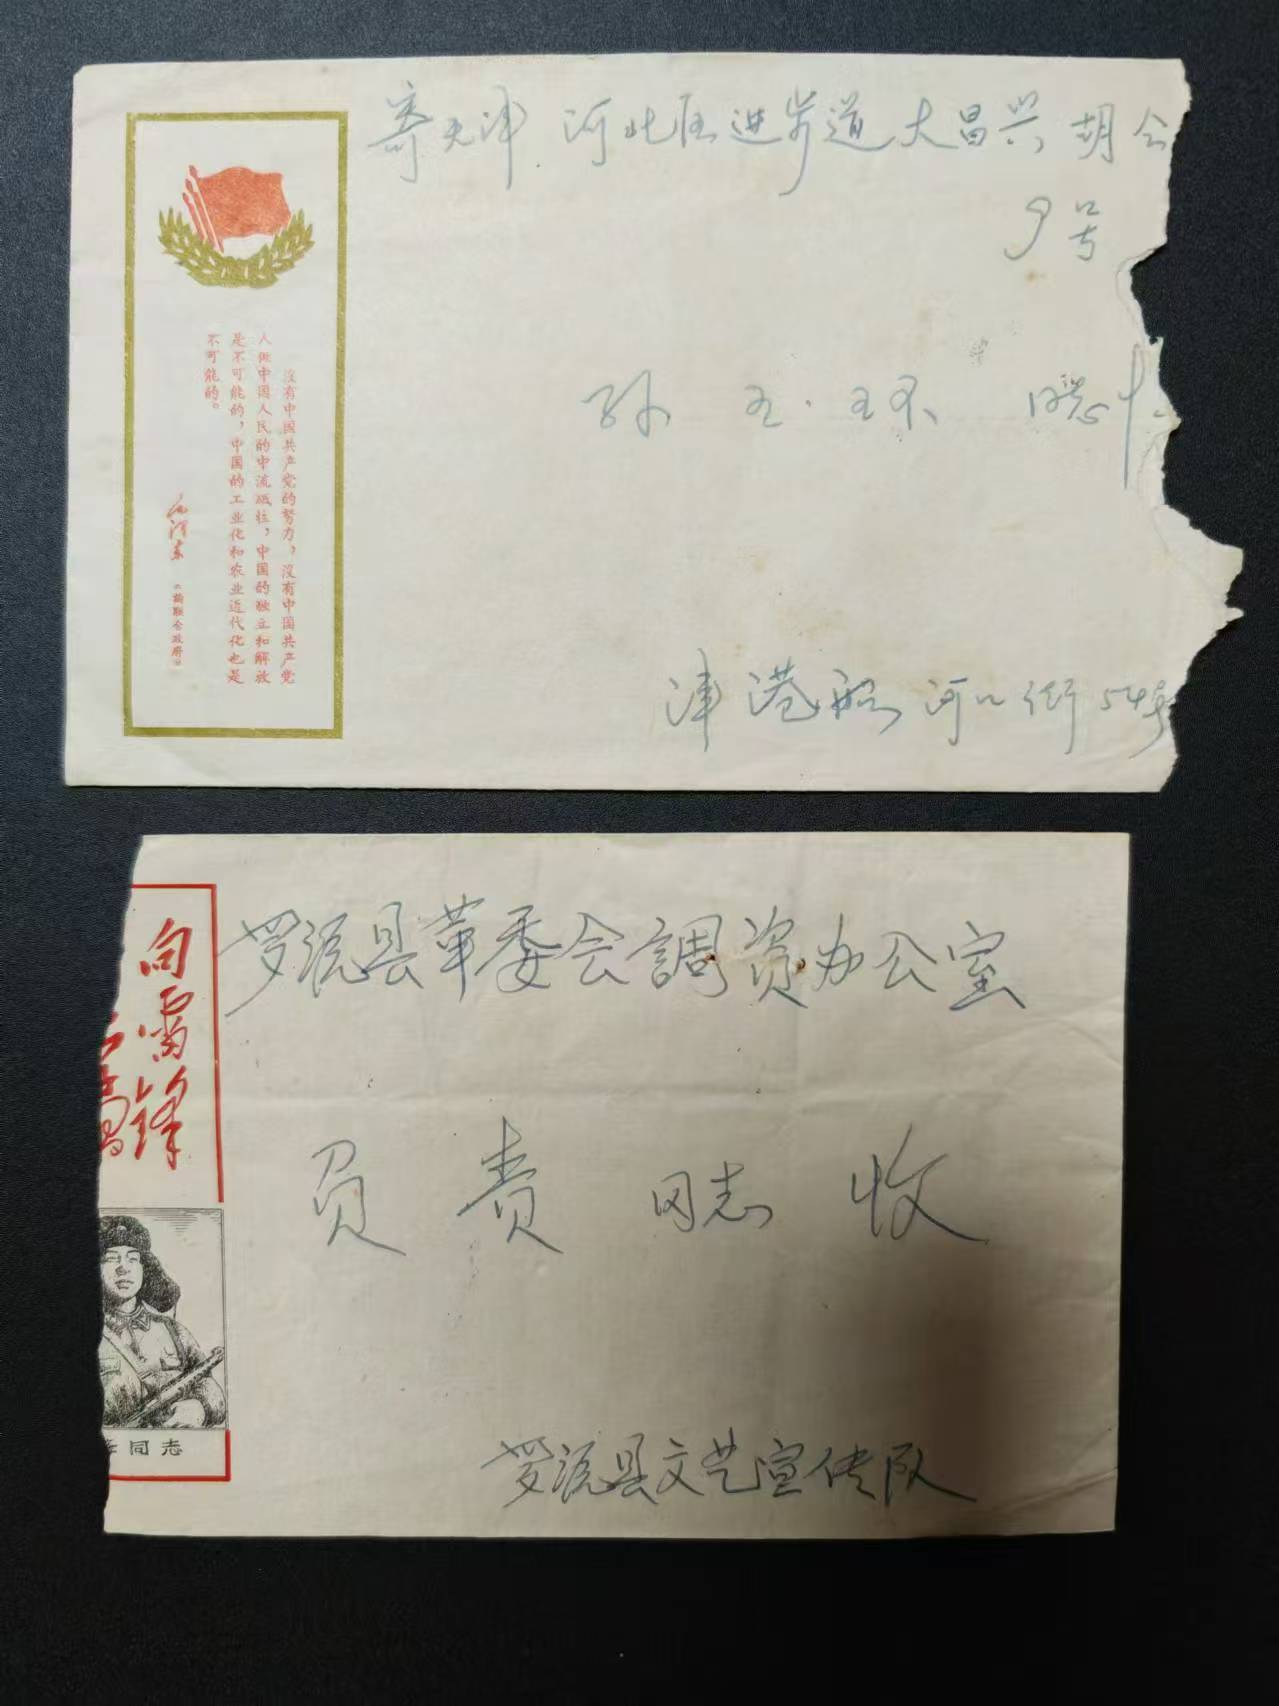 寄天津 河北区进步道大昌兴胡仝
9号
孙玉琢 同志收
津港船 河口街54号
没有中国共产党的努力，没有中国共产党
人做中国人民的中流砥柱，中国的独立和解放
是不可能的，中国的工业化和农业近代化也是
不可能的。
毛泽东
《論联合政府》
罗源县革委会調资办公室
负责同志收
罗源县文艺宣传队
向雷锋
同志